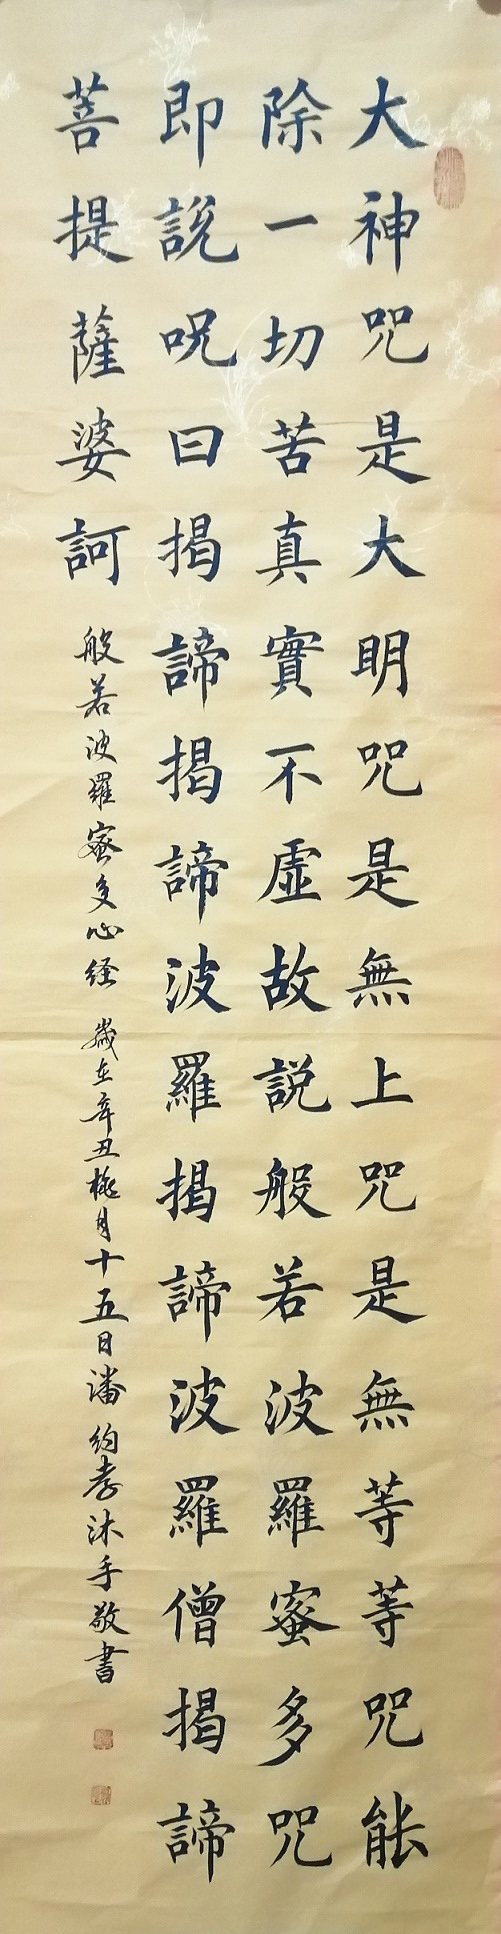 大神咒是大明咒是無上咒是無等等咒能
除一切苦真實不虛故説般若波羅蜜多咒
即説呪曰揭諦揭諦波羅揭諦波羅僧揭諦
菩提薩婆訶
般若波羅蜜多心経 歲在辛丑桃月十五日潘約孝沐手敬書